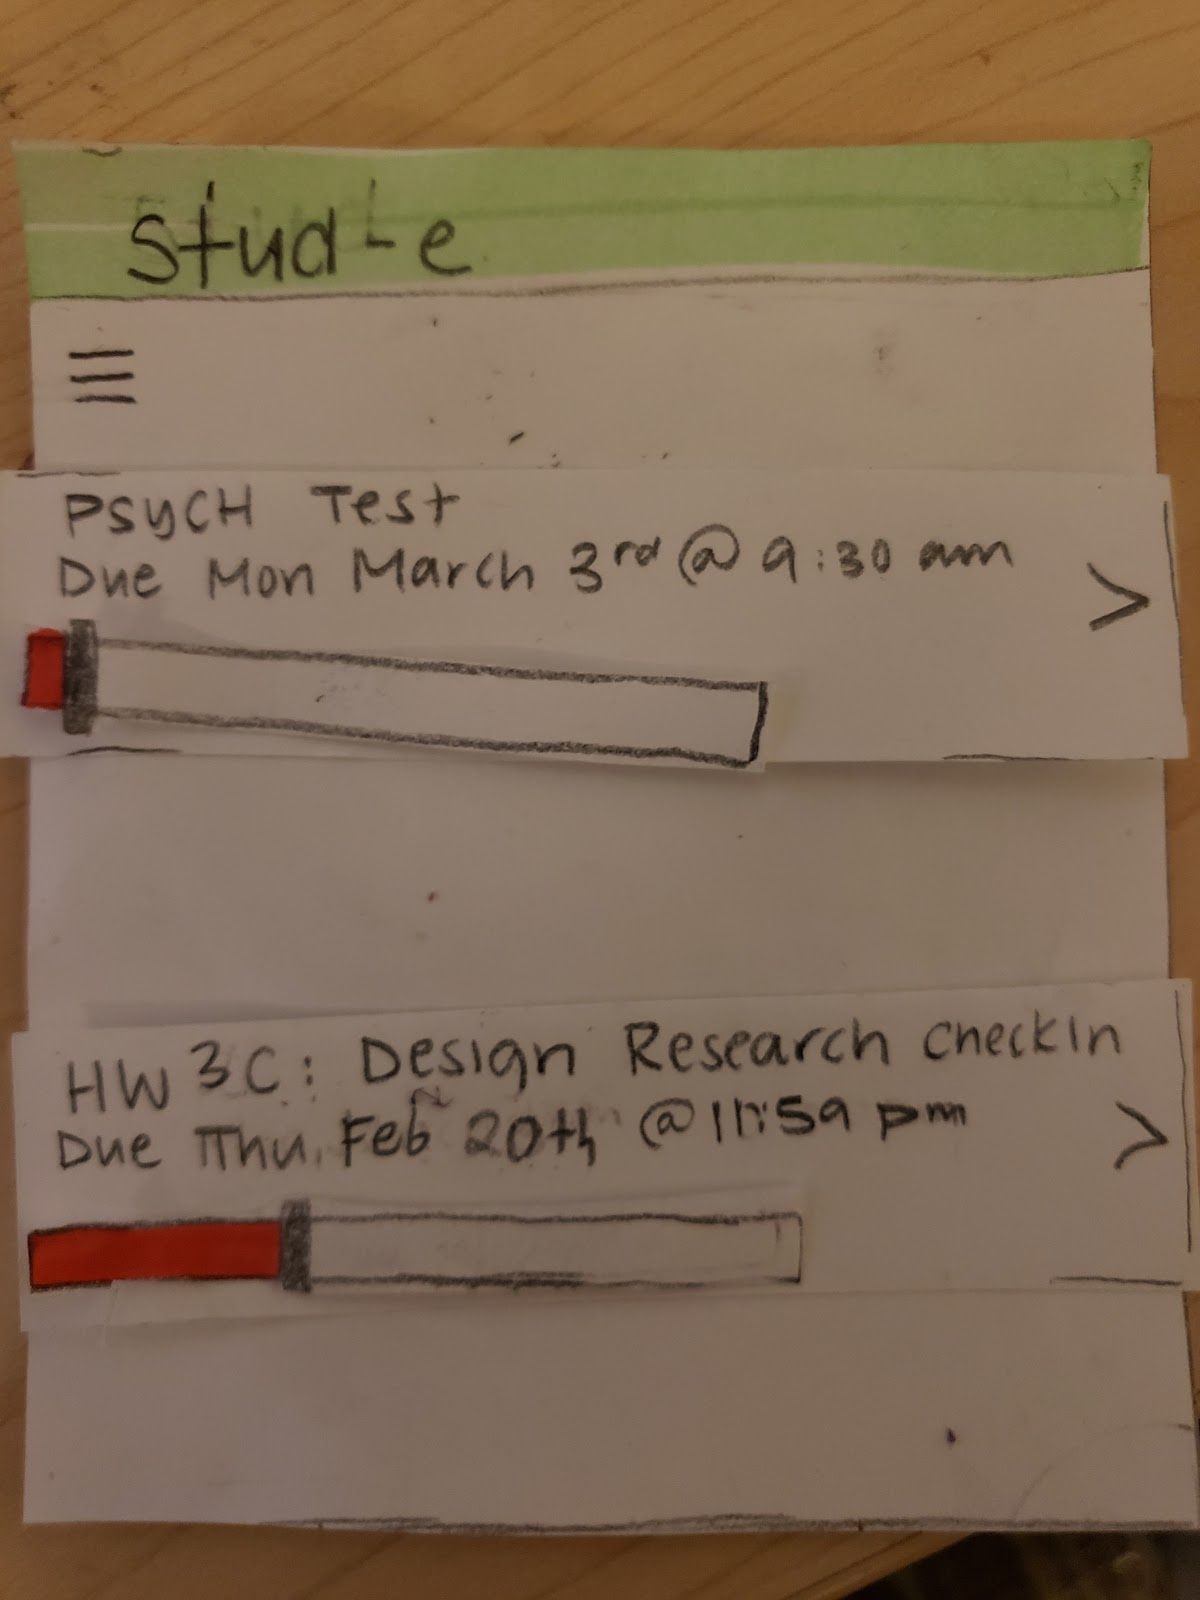 stud-e
PSYCH Test
Due Mon March 3rd @ 9:30 am
>
HW 3C: Design Research CheckIn
Due Thu. Feb 20th @ 11:59 pm
>